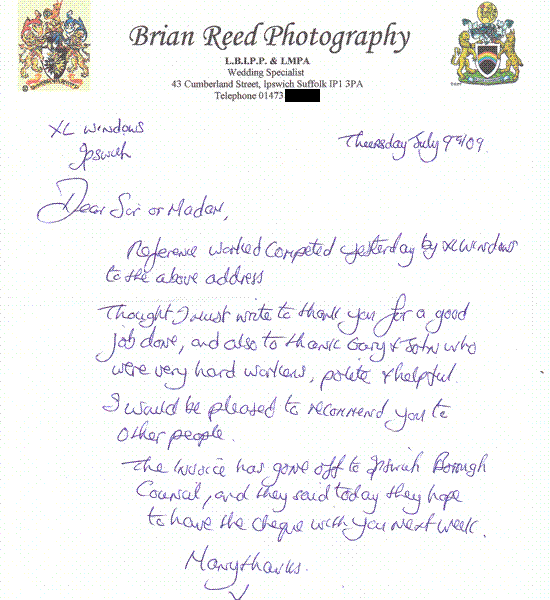 Brian Reed Photography
L.B.I.P.P. & LMPA
Wedding Specialist
43 Cumberland Street, Ipswich Suffolk IP1 3PA
Telephone 01473
XL Windows
Ipswich
Thursday July 9th/09.
Dear Sir or Madam,
Reference worked Competed yesterday by XL Windows
to the above address
Thought I must write to thank you for a good
job done, and also to thank Gary & John who
were very hard workers, polite & helpful.
I would be pleased to recommend you to
other people.
The Invoice has gone off to Ipswich Borough
Counsel, and they said today they hope
to have the cheque with you next week.
Many thanks.